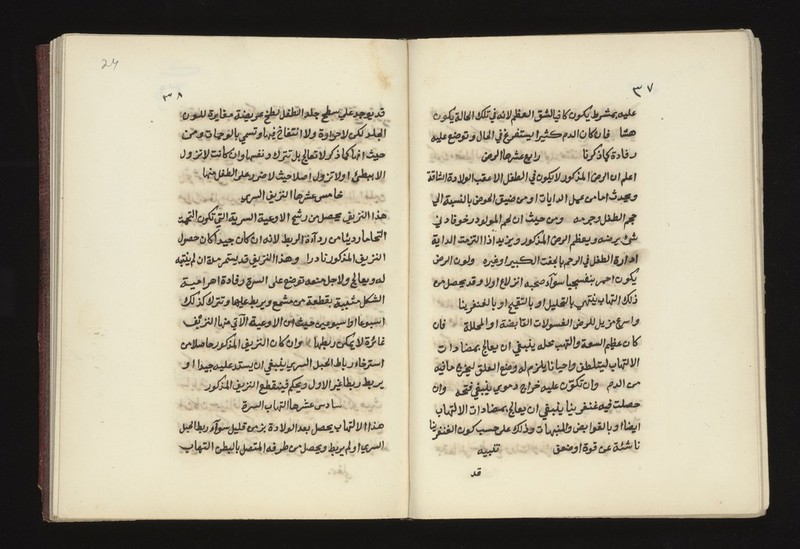 ٣٧
عليه بمشرط يكون كافيا لشق العظم لانه في تلك الحالة يكون
هشا فان كان الدم كثيرا يستفرغ في الحال وتوضع عليه
رفادة كما ذكرنا رابع عشرها الرض
اعلم ان الرض المذكور لا يكون في الطفل الا عقب الولادة الشاقة
ويحدث اما من عمل الدايات او من ضيق الحوض بالنسبة الى
حجم الطفل وجرمه ومن حيث ان لحم المولود رخو فادنى
شئ يرضه ويعظم الرض المذكور ويزيد اذا التزمت الداية
ادارة الطفل في الرحم بالجفت الكبير او غيره ولون الرض
يكون احمر بنفسجيا سوآء صحبه انزلاع او لا وقد يحصل من
ذلك التهاب ينتهي بالتحليل او بالتقيح او بالغنغرينا
واسرع مزيل للرض الغسولات القابضة او المحللة فان
كان عظيم السعة والتهب محله ينبغي ان يعالج بمضادات
الالتهاب ليتلطف واحيانا يلزم له وضع العلق ليخرج ما فيه
من الدم وان تكون عليه خراج دموي ينبغي فتحه وان
حصلت فيه غنغرينا ينبغي ان يعالج بمضادات الالتهاب
ايضا او بالقوابض والمنبهات وذلك على حسب كون الغنغرينا
ناشئة عن قوة او ضعف تنبيه
قد
24
٣٨
قد يوجد على سطح جلد الطفل لطخ عريضة مغايرة للون
الجلد لكن لا حرارة ولا انتفاخ فيها وتسمى بالوحمات ومن
حيث انها كما ذكر لا تعالج بل تترك ونفسها وان كانت لا تزول
الا ببطئ او لا تزول اصلا حيث لا ضرر على الطفل منها
خامس عشرها النزيف السري
هذا النزيف يحصل من رشح الاوعية السرية التي تكون التحمت
التحاما رديئا من ردآءة الربط لانه ان كان جيدا كان حصول
النزيف المذكور نادرا وهذا النزيف قد يستمر مدة ان لم ينتبه
له ويعالج ولاجل منعه توضع على السرة رفادة هرامية
الشكل مثبتة بقطعة من مشمع ويربط عليها وتترك كذلك
اسبوعا او اسبوعين حيث ان الاوعية الآتي منها النزيف
غائرة لا يمكن ربطها وان كان النزيف المذكور حاصلا من
استرخاء رباط الحبل السري ينبغي ان يستد عليه جيدا او
يربط ربطا غير الاول ويحكم فينقطع النزيف المذكور
سادس عشرها التهاب السرة
هذا الالتهاب يحصل بعد الولادة بزمن قليل سوآء ربط الحبل
السري او لم يربط ويحصل من طرفه المتصل بالبطن التهاب